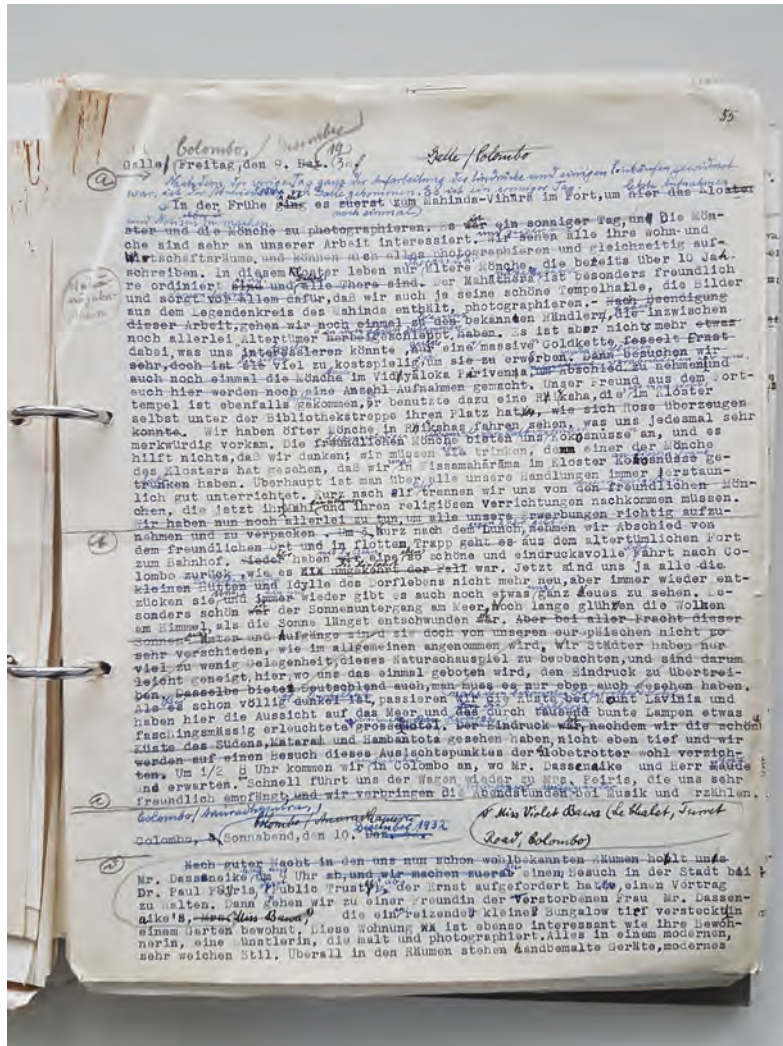 55
Colombo, / Dezember
19
Galle/Colombo
a
Galle, Freitag, den 9. Dez. 32.
Nachdem der vorige Tag ganz der Aufarbeitung der Eindrücke und einigen Einkäufen gewidmet
war, ist gekommen. Es ist ein sonniger Tag.
In der Frühe ging es zuerst zum Mahinda-Vihāra im Fort, um hier das Kloster
noch einmal
ster und die Mönche zu photographieren. Es war ein sonniger Tag, und Die Mön-
che sind sehr an unserer Arbeit interessiert. Wir sehen alle ihre wohn- und
Wirtschaftsräume, und können auch alles photographieren und gleichzeitig auf-
schreiben. In diesem Kloster leben nur ältere Mönche, die bereits über 10 Jah-
re ordiniert sind und alle Thera sind. Der Mahāthera ist besonders freundlich
und sorgt vor allem dafür, daß wir auch ja seine schöne Tempelhalle, die Bilder
aus dem Legendenkreis des Mahinda enthält, photographieren.- Nach Beendigung
dieser Arbeit, gehen wir noch einmal zu den bekannten Händlern, die inzwischen
noch allerlei Altertümer herbeigeschleppt haben. Es ist aber nichts mehr etwas
dabei, was uns interessieren könnte, nur eine massive Goldkette, fesselt Ernst
sehr, doch ist sie viel zu kostspielig, um sie zu erwerben. Dann besuchen wir
auch noch einmal die Mönche im Vidyāloka Parivenna, um Abschied zu nehmen und
auch hier werden noch eine Anzahl Aufnahmen gemacht. Unser Freund aus dem Fort-
tempel ist ebenfalls gekommen, er benutzte dazu eine Rikscha, die im Kloster
selbst unter der Bibliothekstreppe ihren Platz hat, wie sich Rose überzeugen
konnte. Wir haben öfter Mönche in Rikschas fahren sehen, was uns jedesmal sehr
merkwürdig vorkam. Die freundlichen Mönche bieten uns Kokosnüsse an, und es
hilft nichts, daß wir danken; wir müssen sie trinken, denn einer der Mönche
des Klosters hat gesehen, daß wir in Tissamahārāma im Kloster Kokosnüsse ge-
trunken haben. Überhaupt ist man über alle unsere Handlungen immer erstaun-
lich gut unterrichtet. Kurz nach elf trennen wir uns von den freundlichen Mön-
chen, die jetzt ihr Mahl und ihren religiösen Verrichtungen nachkommen müssen.
Wir haben nun noch allerlei zu tun, um alle unsere Erwerbungen richtig aufzu-
b
nehmen und zu verpacken. Um 3 Kurz nach dem Lunch, nehmen wir Abschied von
dem freundlichen Ort und in flotten Trapp geht es aus dem altertümlichen Fort
zum Bahnhof. Wieder haben wir eine so schöne und eindrucksvolle Fahrt nach Co-
lombo zurück, wie es umgekehrt der Fall war. Jetzt sind uns ja alle die
kleinen Hütten und Idylle des Dorflebens nicht mehr neu, aber immer wieder ent-
zücken sie, und immer wieder gibt es auch noch etwas ganz Neues zu sehen. Be-
sonders schön war der Sonnenuntergang am Meer, Noch lange glühten die Wolken
am Himmel, als die Sonne längst entschwunden war. Aber bei aller Pracht dieser
Sonnen Unter und Aufgänge sind sie doch von unseren europäischen nicht so
sehr verschieden, wie im allgemeinen angenommen wird, Wir Städter haben nur
viel zu wenig Gelegenheit, dieses Naturschauspiel zu beobachten, und sind darum
leicht geneigt, hier, wo uns das einmal geboten wird, den Eindruck zu übertrei-
ben. Dasselbe bietet Deutschland auch, man muss es nur eben auch gesehen haben.
Als es schon völlig dunkel ist, passieren wir die Küste bei Mount Lavinia und
haben hier die Aussicht auf das Meer und das durch tausend bunte Lampen etwas
faschingsmässig erleuchtete grosse Hotel. Der Eindruck war, nachdem wir die schön
Küste des Südens, Matara und Hambantota gesehen haben, nicht eben tief und wir
werden auf einen Besuch dieses Aussichtspunktes der Globetrotter wohl verzich-
ten. Um 1/2 8 Uhr kommen wir in Colombo an, wo Mr. Dassanaike und Herr
und erwarten. Schnell führt uns der Wagen wieder zu Mrs. Peiris, die uns sehr
freundlich empfängt, und wir verbringen die Abendstunden bei Musik und rzählen.
Colombo/Anuradhapura
Colombo/Anuradhapura
Colombo, Sonnabend, den 10. Dez.
Dezember 1932
Miss Violet Bawa (Le Chalet, Turret
Road, Colombo)
Nach guter Nacht in den uns nun schon wohlbekannten Räumen holt uns
Mr. Dassanaike um 9 Uhr ab, und wir machen zuerst einen Besuch in der Stadt bei
Dr. Paul Peiris, Public Trustee, der Ernst aufgefordert hatte, einen Vortrag
zu halten. Dann gehen wir zu einer Freundin der verstorbenen Frau Mr. Dassen-
aike's, Miss Bawa, die ein reizendes kleines Bungalow tief versteckt in
einem Garten bewohnt. Diese Wohnung ist ebenso interessant wie ihre Bewoh-
nerin, eine Künstlerin, die malt und photographiert. Alles in einem modernen,
sehr weichen Stil. Überall in den Räumen stehen handbemalte Geräte, modernes